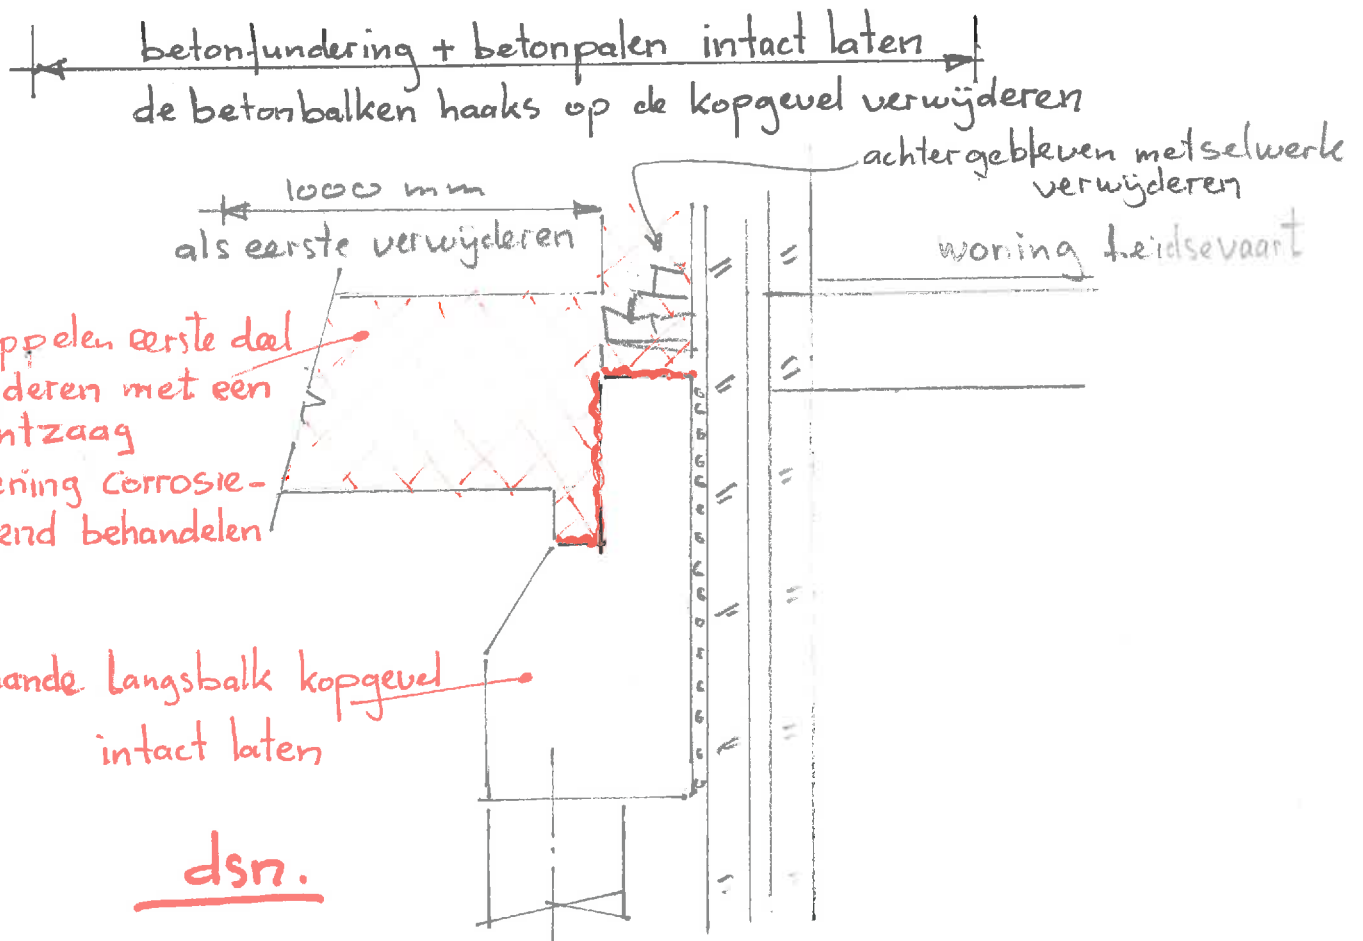 betonfundering + betonpalen intact laten
de betonbalken haaks op de kopgevel verwijderen
achtergebleven metselwerk
verwijderen
1000 mm
als eerste verwijderen
woning Leidsevaart
ppelen eerste deel
deren met een
ntzaag
ening corrosie-
end behandelen
ande langsbalk kopgevel
intact laten
dsn.